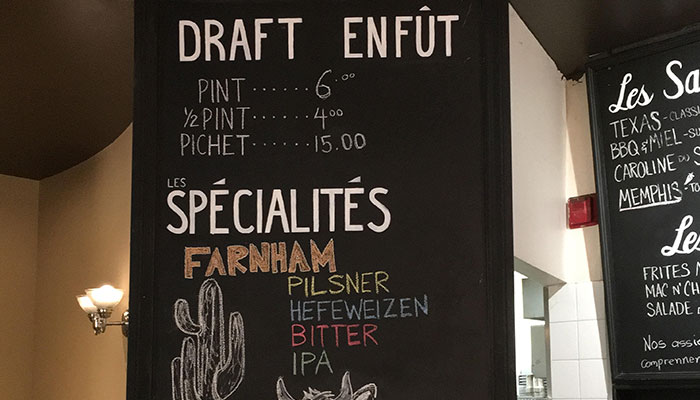 DRAFT ENFÛT
PINT ...... 6.00
1/2 PINT ...... 4.00
PICHET ...... 15.00
LES
SPÉCIALITÉS
FARNHAM
PILSNER
HEFEWEIZEN
BITTER
IPA
Les
TEXAS -
BBQ & MIEL -
CAROLINE DU
MEMPHIS
FRITES
MAC N'
SALADE
Nos